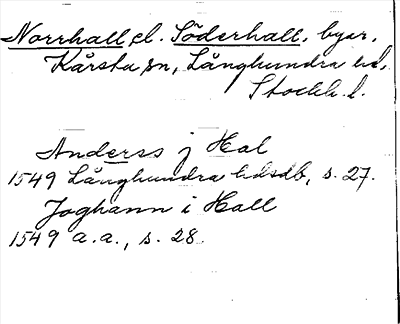 Norrhall el. Söderhall, byar,
Kårsta sn, Långhundra hd,
Stockh. l.
Anderss j Hal
1549 Långhundra hdsdb, s. 27.
Joghann i Hall
1549 a.a., s. 28.